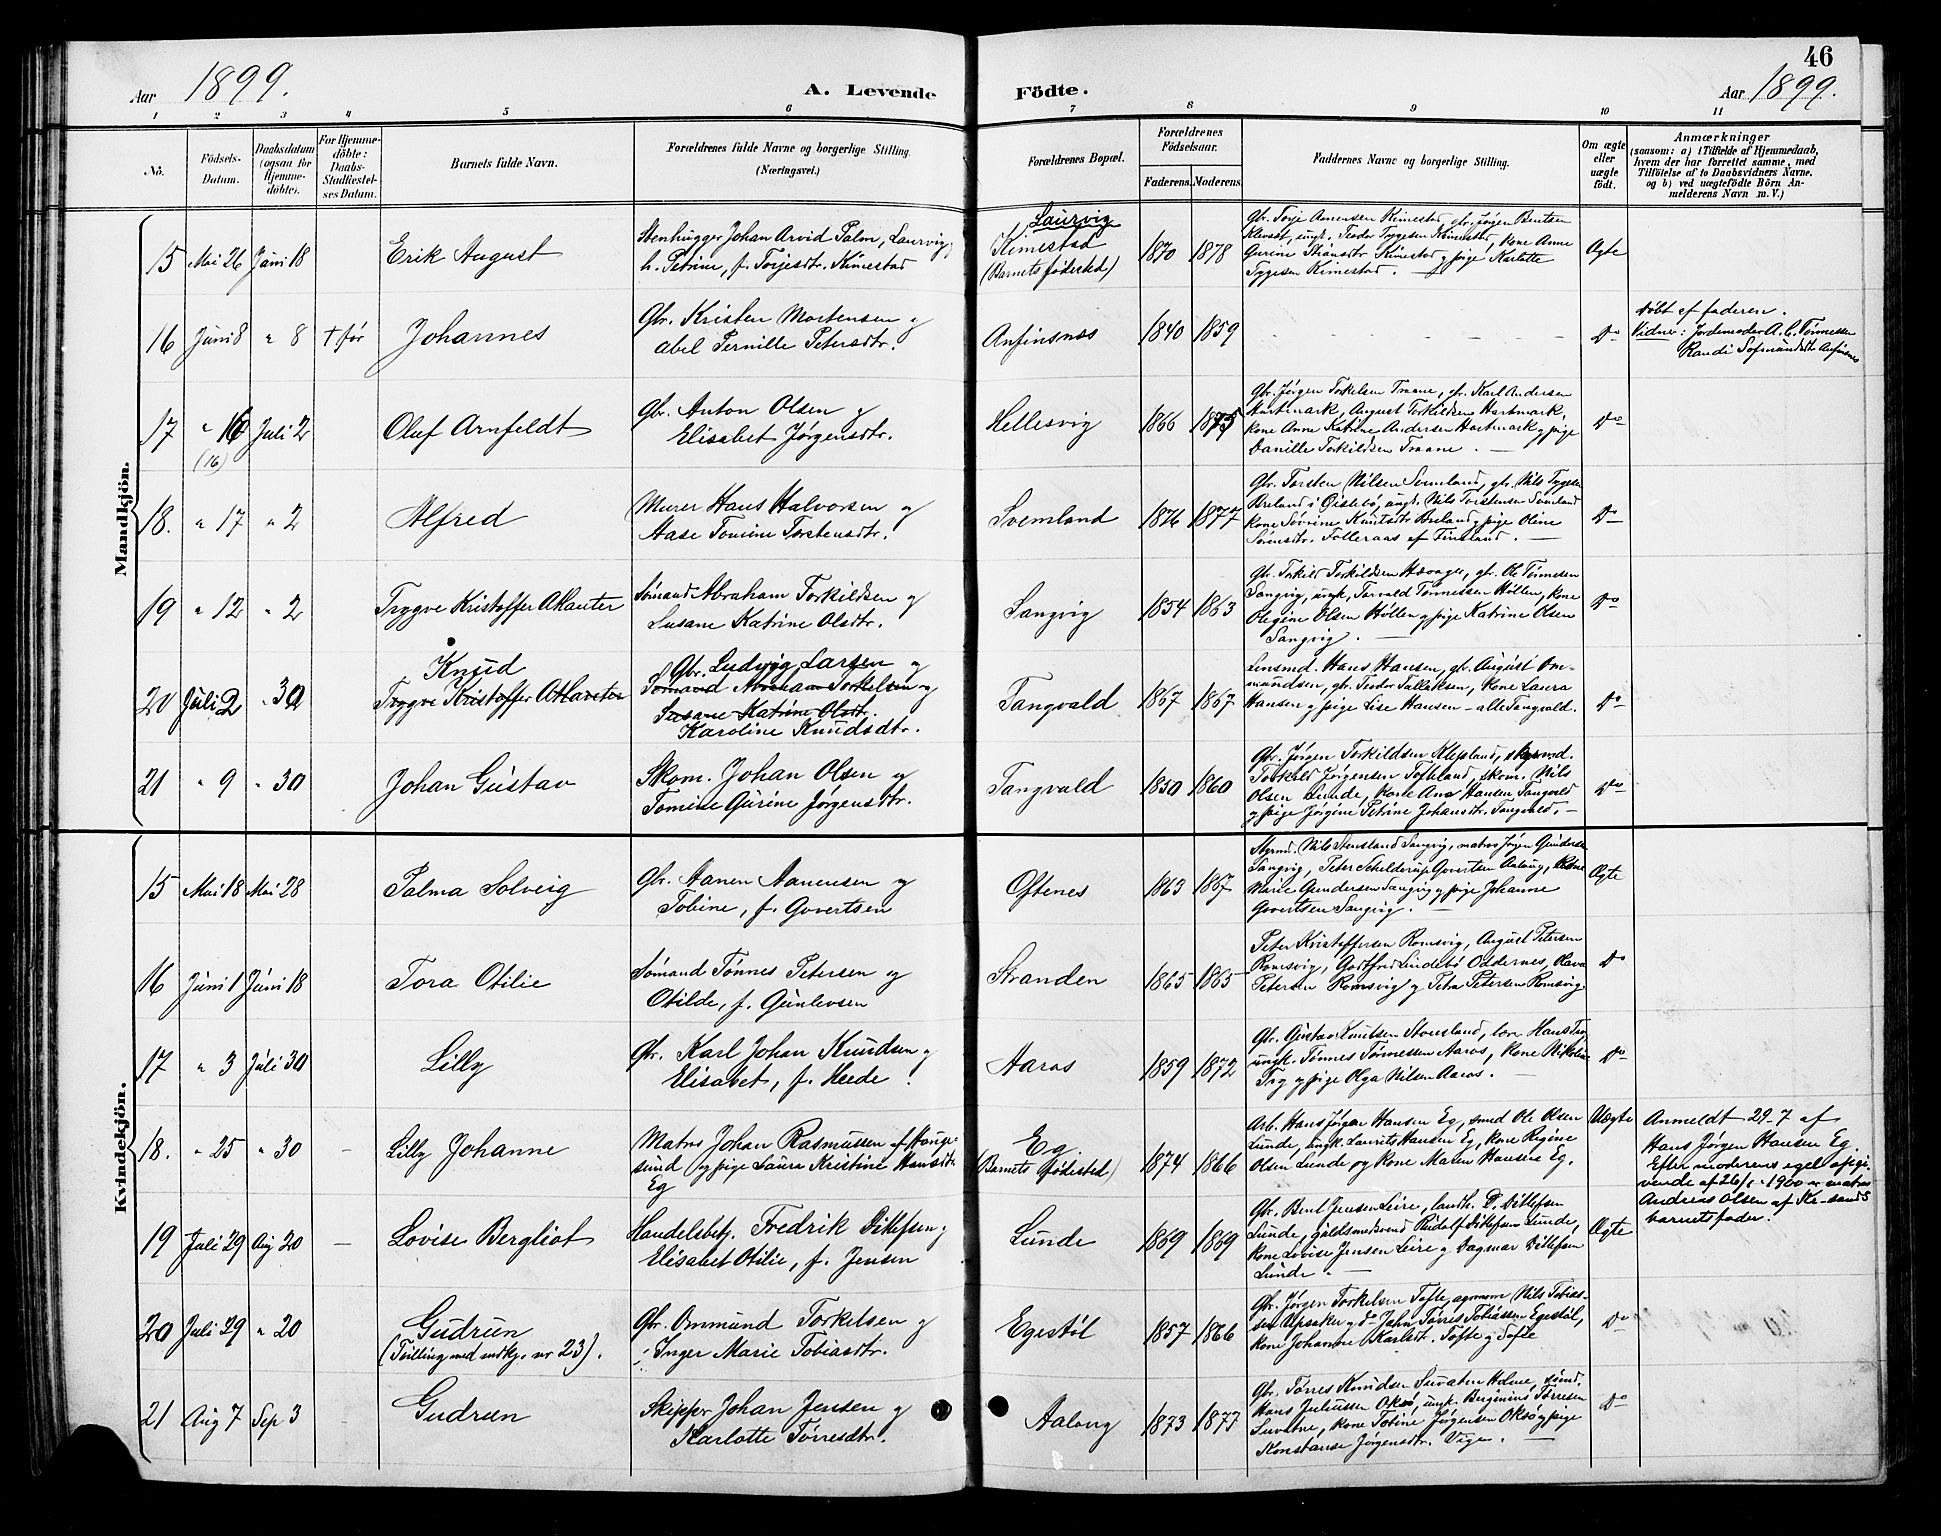 46
Aar 1899. A. Levende Födte. Aar 1899.
1 2 3 4 5 6 7 8 9 10 11
No. Födsels-Datum. Daabsdatum (ogsaa for Hjemme-döbte). For Hjemme-döbte: Daabs-Stadfæstel-ses Datum. Barnets fulde Navn. Forældrenes fulde Navne og borgerlige Stilling (Næringsvei.) Forældrenes Bopæl. Forældrenes Födselsaar. Faderens. Moderens. Faddernes Navne og borgerlige Stilling. Om ægte eller uægte födt. Anmærkninger
(saasom: a) i Tilfælde af Hjemmedaab,
hvem der har forrettet samme, med
Tilföielse af to Daabsvidners Navne,
og b) ved uægtefödte Börn An-
melderens Navn m. V.)
Mandkjön.
15 Mai 26 Juni 18 Erik August
Stenhugger Johan Arvid Palm, Laurvig,
h. Petrine, f. Torjesdtr. Kimestad
Laurvig
Kimestad
(Barnets fødested)
1870 1878
Gbr. Torje Aanensen Kimestad, gbr. Jørgen Bentsen
Klevset, ungk. Teodor Tygesen Kimestad, kone Anne
Gurine Kimestad og pige Karlotte
Tygesen Kimestad.
Ægte
16 Juni 8 " 8 † før Johannes
Gbr. Kristen Mortensen og
Abel Pernille Petersdtr.
Anfinsnæs
1840 1859
Do
Døbt af faderen.
Vidner: Jordemoder A. C. Tønnessen
Randi Anfinsnes
17 " 16 Juli 2 Oluf Arnfeldt
(16)
Gbr. Anton Olsen og
Elisabet Jørgensdtr.
Hellesvig
1866 1875
Gbr. Jørgen Torkelsen Traane, gbr. Karl Andersen
Hartmark, August Torkildsen Hartmark,
kone Anne Katrine Andersen Hartmark og pige
Danille Torkildsen Traane.
Do
18. " 17 " 2 Alfred
Murer Hans Halvorsen og
Aase Tomine Torstensdtr.
Svemland
1876 1877
Gbr. Torsten Nilsen Svemland, gbr. Nils Tygesen
Breland i Øislebø, ungk. Nils Torstensen Svemland
kone Sørine Knutsdtr Breland og pige Oline
Sørensdtr. Folleraas af Finsland.
Do
19 " 12 " 2 Trygve Kristoffer Atlanter
Sømand Abraham Torkildsen og
Susane Katrine Olsdtr.
Langvig
1854 1863
Gbr. Torkild Torkildsen gbr. Ole Tønnesen
Sangvig, ungk. Torvald Tønnessen Høllen, kone
Olegine Olsen Høllen og pige Katrine Olsen
Sangvig.
Do
20 Juli 2 " 30 Knud
Trygve Kristoffer Atlanter
Gbr. Ludvig Larsen og
Sømand Abraham Torkelsen og
Susane Katrine Olsdtr.
Karoline Knudsdtr.
Tangvald
1867 1867
Lensmd. Hans Hansen, gbr. August Om-
mundsen, gbr. Teodor Tallaksen, kone Laura
Hansen og pige Lise Hansen - alle Tangvald.
Do
21 " 9 " 30 Johan Gustav
Skom. Johan Olsen og
Tomine Gurine Jørgensdtr.
Tangvald
1850 1860
Gbr. Jørgen Torkildsen Klepland,
Torkild Jørgensen Tofteland, skom. Nils
Olsen Lunde, kone Ana Hansen Tangvald
og pige Jørgine Petrine Johansdtr. Tangvald.
Do
Kvindekjön.
15 Mai 18 Mai 28 Palma Solveig
Gbr. Aanen Aanensen og
Tobine, f. Govertsen
Oftenes
1863 1867
Styrmd. Nils Stensland Sangvig, matros Jørgen Gundersen
Sangvig, Peter Schelderup Govertsen Aalaug, kone
Marie Gundersen Sangvig og pige Johanne
Govertsen Sangvig.
Ægte
16 Juni 1 Juni 18 Tora Otilie
Sømand Tønnes Petersen og
Otilde, f. Gunlevsen
Stranden
1865 1865
Peter Kristoffersen Romsvig, August Petersen
Romsvig, Godtfred Lindebø Oddernes,
Petersen Romsvig og Petra Petersen Romsvig
Do
17 " 3 Juli 30 Lilly
Gbr. Karl Johan Knudsen og
Elisabet, f. Heede.
Aaros
1859 1872
Gbr. Gustav Knutsen Stensland, Hans Try,
ungk. Tønnes Tønnessen Aaros, kone Nikoline
Try og pige Olga Nilsen Aaros.
Do
18. " 25 " 30 - Lilly Johanne
Matros Johan Rasmussen af Hauge-
sund og pige Laura Kristine Hansdtr.
Eg
Eg.
(Barnets fødested)
1874 1866
Arb. Hans Jørgen Hansen Eg, smed Ole Olsen
Lunde, ungk. Laurits Hansen Eg, kone Regine
Olsen Lunde og kone Maren Hansine Eg.
Uægte
Anmeldt 29-7 af
Hans Jørgen Hansen Eg.
Efter moderens egel opgi-
vende af 26/1 - 1900 er matros
Andreas Olsen af Kr-sand S
barnets fader.
19 Juli 29 Aug 20 - Lovise Bergliot
Handelsbetj. Fredrik Ditlefsen og
Elisabet Otilie, f. Jensen
Lunde
1869 1869
Gbr. Bent Jensen Leire, landh. D. Ditlefsen
Lunde, guldsmedsvend Rudolf Ditlefsen Lunde,
kone Lovise Jensen Leire og Dagmar Ditlefsen
Lunde.
Ægte
20 Juli 29 " 20 Gudrun
(Tvilling med mdkj. nr 23).
Gbr. Ommund Torkelsen og
Inger Marie Tobiasdtr.
Egestøl
1857 1866
Gbr. Jørgen Torkelsen Tofte, agronom Nils Tobias-
sen Upsaker og do John Tørres Tobiassen Egestøl,
kone Johanne Karlsdt. Tofte
Do
21 Aug 7 Sep 3 Gudrun
Skipper Johan Jensen og
Karlotte Tørresdtr.
Aalong
1873 1877
Gbr. Tørres Knudsen Suvatne Holme, sømd.
Hans Juliussen Oksø, ungk. Berginius Tørresen
Suvatne, kone Tobine Jørgensen Oksø og pige
Konstanse Jørgensdtr. Vige.
Do